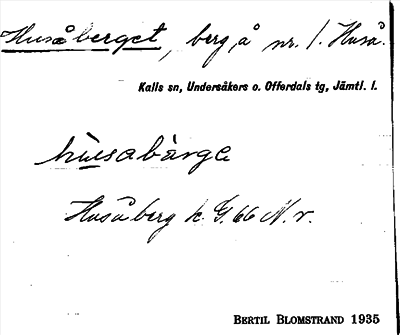 Husåberget, berg, å nr. 1. Huså.
Kalls sn, Undersåkers o. Offerdals tg, Jämtl. l.
hùsabàrge
Husåberg k. G. 66 N. v.
BERTIL BLOMSTRAND 1935